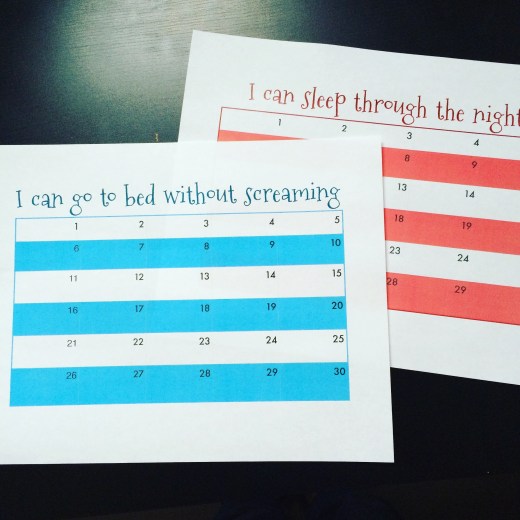 I can go to bed without screaming
1 2 3 4 5
6 7 8 9 10
11 12 13 14 15
16 17 18 19 20
21 22 23 24 25
26 27 28 29 30
I can sleep through the night
1 2 3 4
8 9
13 14
18 19
23 24
28 29